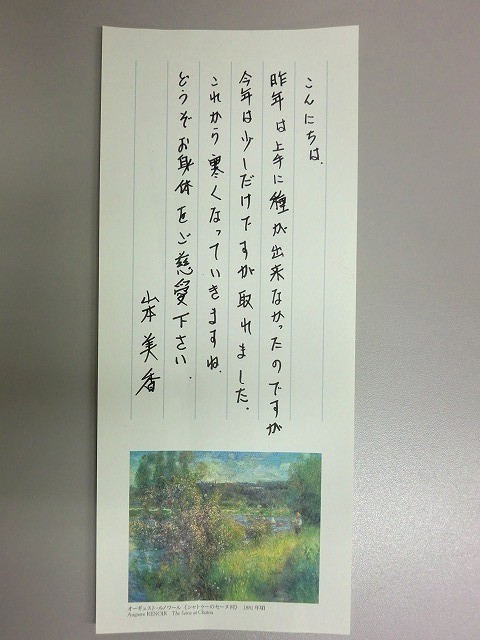 こんにちは、
昨年は上手に種が出来なかったのですが
今年は少しだけですが取れました。
これから寒くなっていきますね。
どうぞお身体をご慈愛下さい。
山本美香
オーギュスト・ルノワール 《シャトゥーのセーヌ河》 1881年頃
Auguste RENOIR The Seine at Chatou